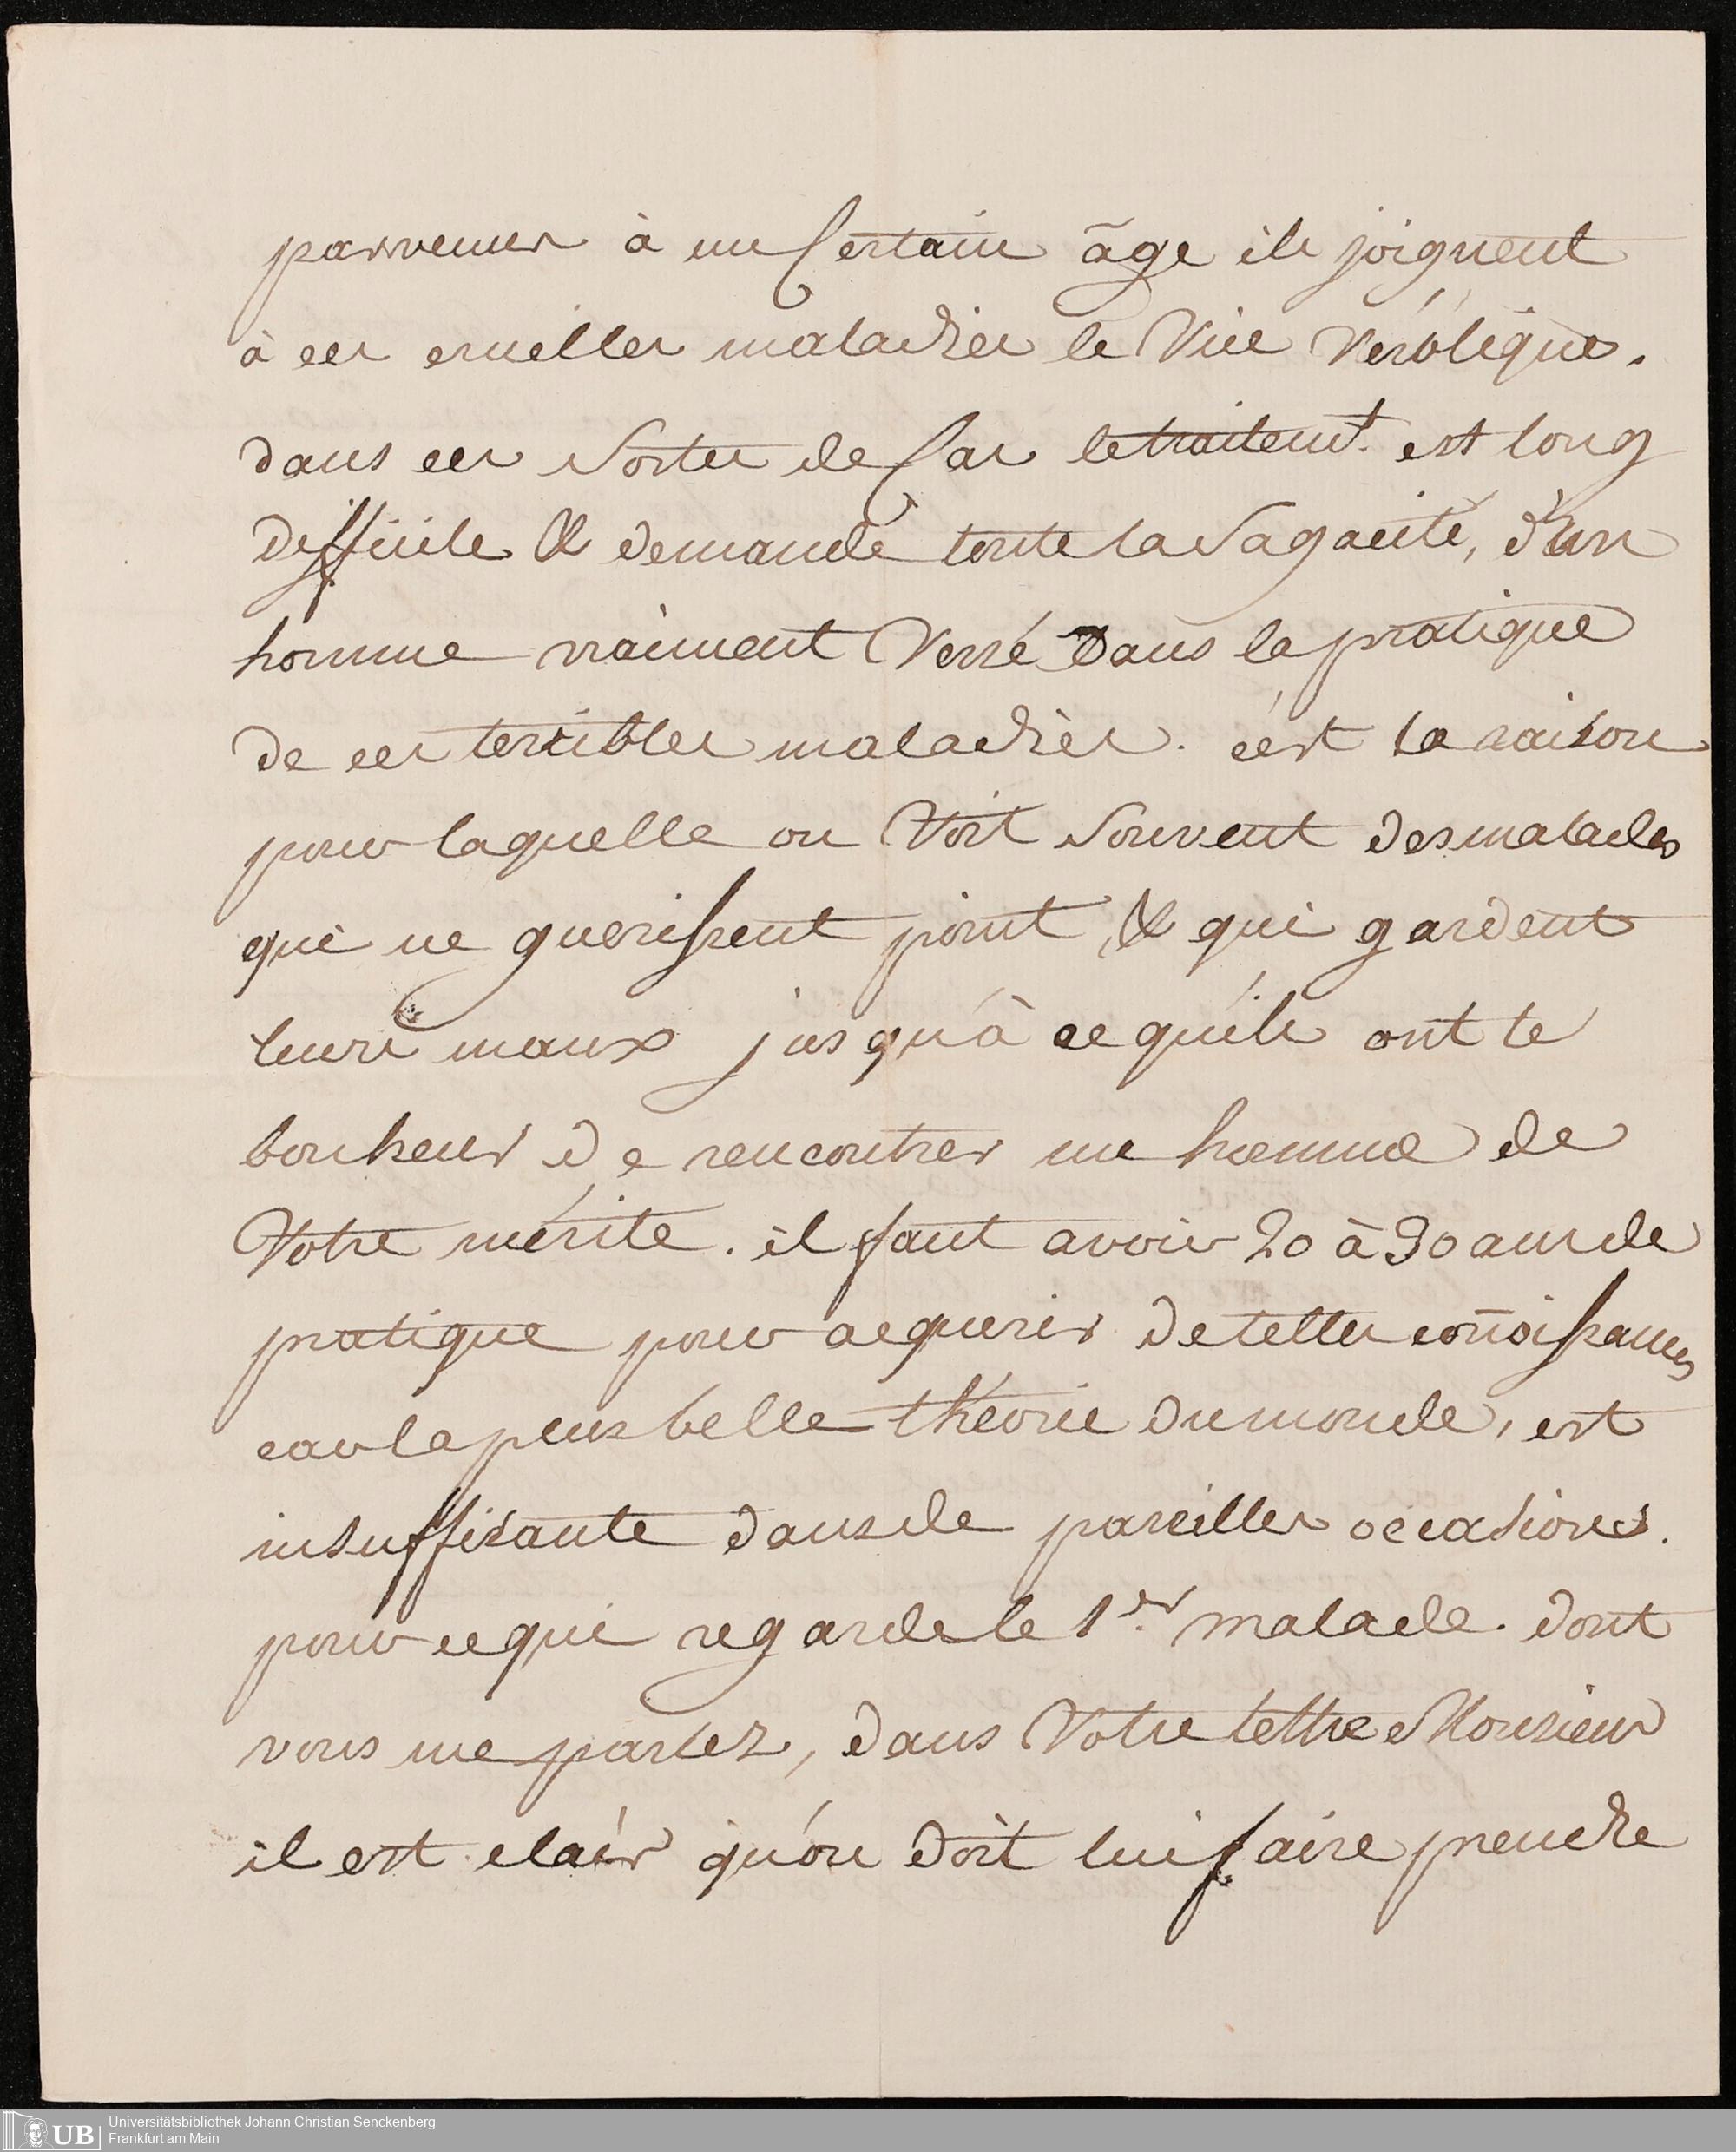 parvenus à un Certain âge ils joignent
à ces cruelles maladies le Vice Vérolique.
dans ces Sortes de Cas le traitemt. est long
difficile & demande toute la Sagacité, d'un
homme vraiment Versé dans la pratique
de ces terribles maladies. c'est la raison
pour laquelle on Voit Souvent des malades
qui ne guerissent point, & qui gardent
leurs maux jusqu'à ce qu'ils ont le
bonheur de rencontrer un homme de
Votre mérite. il faut avoir 20 à 30 ans de
pratique pour acquerir de telles coñoissances
car la plus belle théorie du monde, est
insuffisante dans de pareilles occasions.
pour ce qui regarde le 1er. malade. dont
vous me parlez, dans Votre lettre Monsieur
il est clair qu'on doit lui faire prendre
UB Universitätsbibliothek Johann Christian Senckenberg
Frankfurt am Main